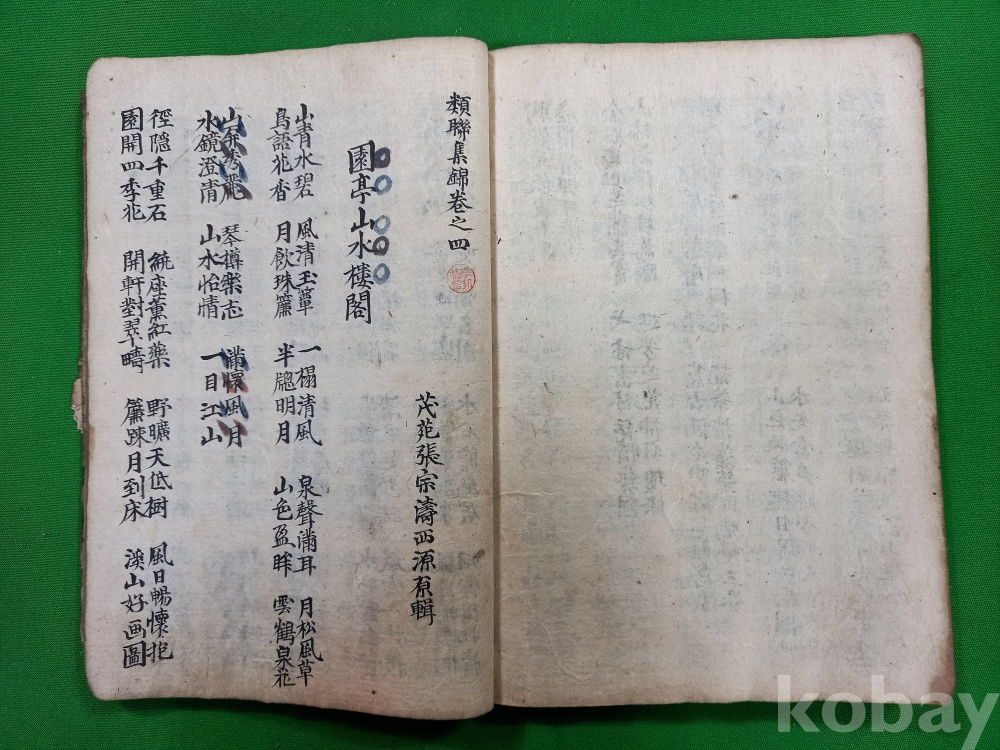 類聯集錦卷之四
茂苑張宗濤西源原輯
園亭山水樓閣
山青水碧 風清玉簟 一榻清風 泉聲滿耳 月松風草
鳥語花香 月飲珠簾 半牕明月 山色盈眸 雲鶴泉花
山 秀 琴樽樂志 滿懷風月
水鏡澄清 山水怡情 一目江山
徑隱千重石 繞座薰紅藥 野曠天低樹 風日暢懷抱
園開四季花 開軒對翠疇 簾踈月到床 溪山好画圖
kobay